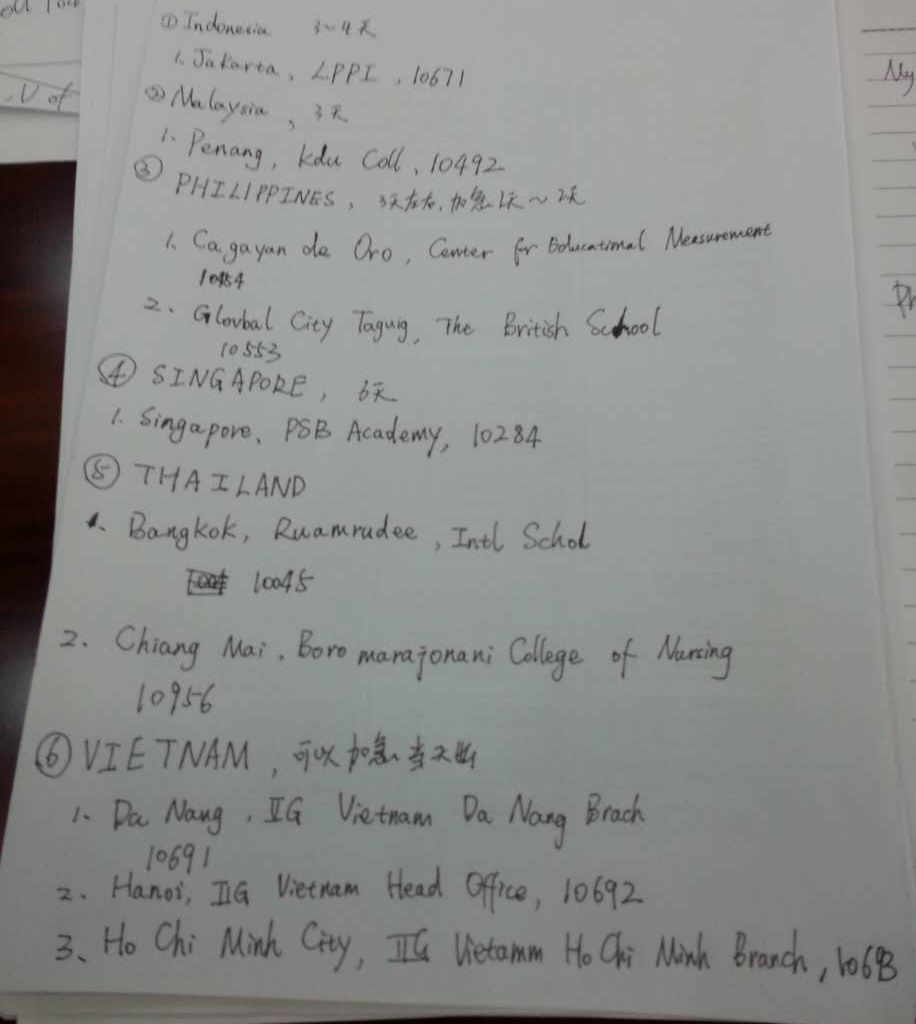 ① Indonesia 3~4天
1. Jakarta, LPPI, 10671
② Malaysia, 3天
1. Penang, kdu Coll, 10492
③ PHILIPPINES, 3天左右, 加急1天~2天
1. Cagayan de Oro, Center for Educational Measurement
10484
2. Glovbal City Taguig, The British School
10553
④ SINGAPORE, 3天
1. Singapore, PSB Academy, 10284
⑤ THAILAND
1. Bangkok, Ruamrudee, Intl Schol
10045
2. Chiang Mai, Boromarajonani College of Nursing
10956
⑥ VIETNAM, 可以加急当天出
1. Da Nang, IIG Vietnam Da Nang Brach
10691
2. Hanoi, IIG Vietnam Head Office, 10692
3、Ho Chi Minh City, IIG Vietamm Ho Chi Minh Branch, 10693
My